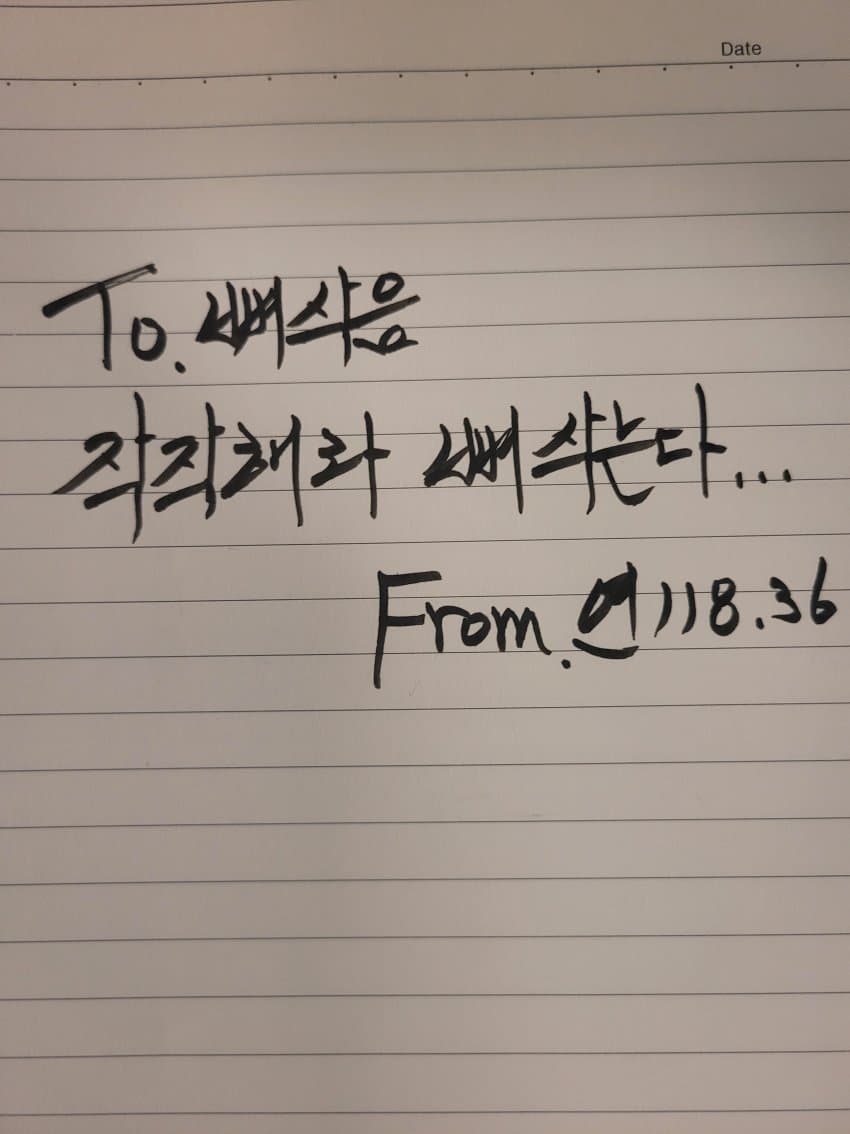 Date
To. 뼈삭음
작작해라 뼈삭는다...
From. 연118.36